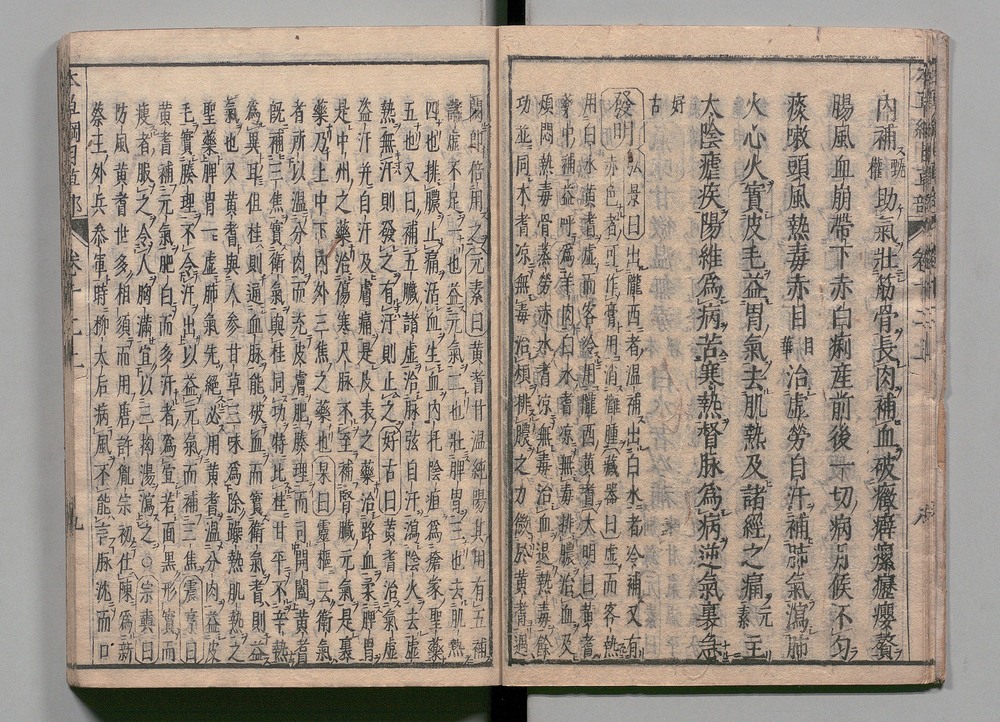 内補甄權助氣壯筋骨長肉補血破癥癖瘰癧癭贅
腸風血崩帶下赤白痢産前後一切病月候不勻
痰嗽頭風熱毒赤目日華治虚勞自汗補肺氣瀉肺
火心火實皮毛益胃氣去肌熱及諸經之痛元素主
太陰瘧疾陽維爲病苦寒熱督脉爲病逆氣裏急
好古
發明弘景曰出隴西者温補出白水者冷補又有
赤色者可作膏用消癰腫藏器曰虚而客熱
用白水黄耆虚而客冷用隴西黄耆大明曰黄耆
藥中補益呼爲羊肉白水耆凉無毒排膿治血及
煩悶熱毒骨蒸勞赤水耆凉無毒治血退熱毒餘
功並同木耆凉無毒治煩排膿之力微於黄耆遇
闕即倍用之元素曰黄耆甘温純陽其用有五補
諸虚不足一也益元氣二也壯脾胃三也去肌熱
四也排膿止痛活血生血内托陰疽爲瘡家聖藥
五也又曰補五臟諸虚治脉弦自汗瀉陰火去虚
熱無汗則發之有汗則止之好古曰黄耆治氣虚
盗汗并自汗及膚痛是皮表之藥治咯血柔脾胃
是中州之藥治傷寒尺脉不至補腎臟元氣是裏
藥乃上中下内外三焦之藥也杲曰靈樞云衛氣
者所以温分肉而充皮膚肥腠理而司開闔黄耆
既補三焦實衛氣與桂同功特比桂甘平不辛熱
爲異耳但桂則通血脉能破血而實衛氣耆則益
氣也又黄耆與人參甘草三味爲除躁熱肌熱之
聖藥脾胃一虚肺氣先絶必用黄耆温分肉益皮
毛實腠理不令汗出以益元氣而補三焦震亨曰
黄耆補元氣肥白而多汗者爲宜若面黒形實而
瘦者服之令人胸滿宜以三拗湯瀉之○宗奭曰
防風黄耆世多相須而用唐許胤宗初仕陳爲新
蔡王外兵參軍時柳太后病風不能言脉沈而口